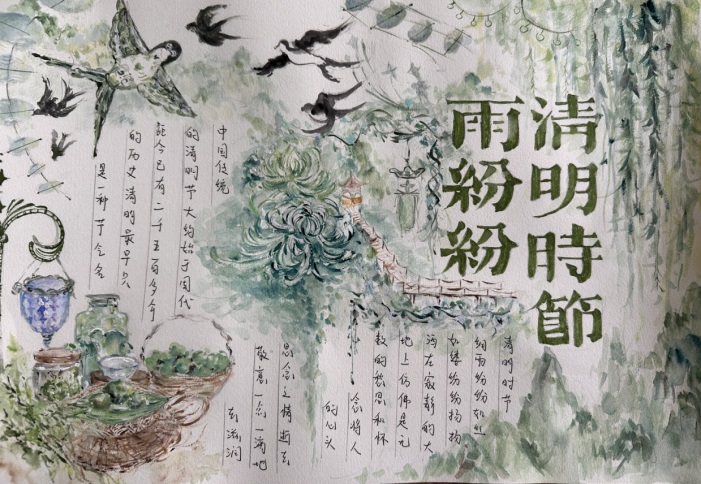 清明時節
雨紛紛
中国传统
的清明节大约始于周代
距今已有二千五百多年
的历史清明最早只
是一种节气名
清明时节
细雨纷纷如丝
如缕纷纷扬扬
洒在寂静的大
地上仿佛是无
数的愁思和怀
念将人
的心头
思念之情逝去
敬意一点一滴地
在滋润